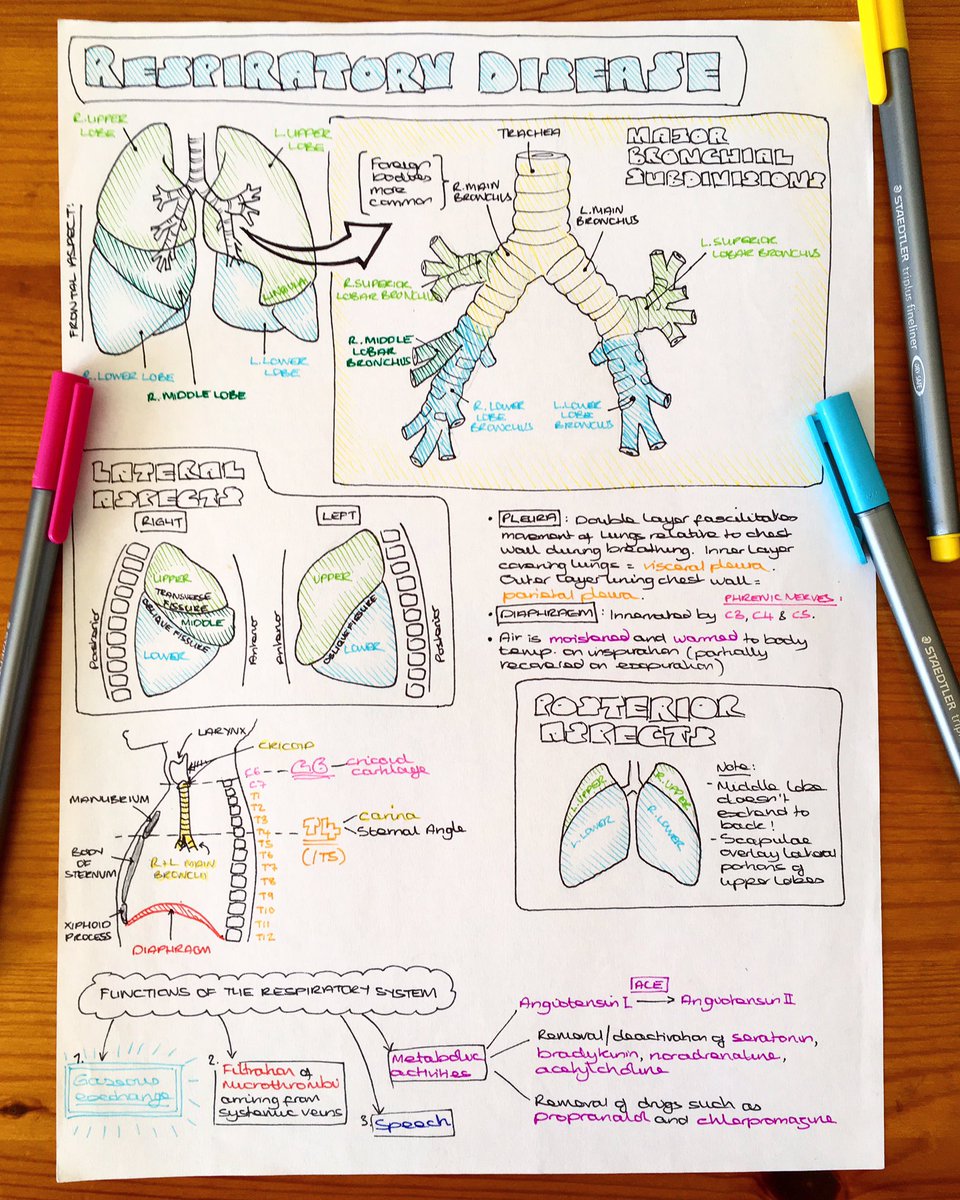 RESPIRATORY DISEASE
R. UPPER
LOBE
L. UPPER
LOBE
FRONTAL ASPECT:
LINGULA
R. LOWER LOBE
R. MIDDLE LOBE
L. LOWER
LOBE
MAJOR
BRONCHIAL
SUBDIVISIONS
TRACHEA
Foreign
bodies
more
common
R. MAIN
BRONCHUS
L. MAIN
BRONCHUS
L. SUPERIOR
LOBAR BRONCHUS
R. SUPERIOR
LOBAR BRONCHUS
R. MIDDLE
LOBAR
BRONCHUS
R. LOWER
LOBE
BRONCHUS
L. LOWER
LOBE
BRONCHUS
LATERAL
ASPECTS
RIGHT
LEFT
Posterior
UPPER
TRANSVERSE
FISSURE
MIDDLE
OBLIQUE FISSURE
LOWER
Anterior
Anterior
UPPER
OBLIQUE FISSURE
LOWER
Posterior
• PLEURA : Double layer fascilitates
movement of lungs relative to chest
wall during breathing. Inner layer
covering lungs = visceral pleura.
Outer layer lining chest wall =
parietal pleura.
PHRENIC NERVES:
• DIAPHRAGM : Innervated by C3, C4 & C5.
• Air is moistened and warmed to body
temp. on inspiration (partially
recovered on expiration)
LARYNX
CRICOID
C6 -- C6 - cricoid
cartilage
C7
T1
T2
T3
T4
T5
T6
T7
T8
T9
T10
T11
T12
T4
(/T5)
carina
Sternal Angle
MANUBRIUM
BODY
OF
STERNUM
R+L MAIN
BRONCHI
XIPHOID
PROCESS
DIAPHRAGM
POSTERIOR
ASPECTS
L. UPPER
R. UPPER
L. LOWER
R. LOWER
Note:
- Middle lobe
doesn't
extend to
back!
- Scapulae
overlay lateral
portions of
upper lobes
FUNCTIONS OF THE RESPIRATORY SYSTEM
1.
Gaseous
exchange
2.
Filtration of
microthrombi
arriving from
systemic veins
3.
Speech
Metabolic
activities
ACE
Angiotensin I → Angiotensin II
Removal/deactivation of seratonin,
bradykinin, noradrenaline,
acetylcholine
Removal of drugs such as
propranalol and chlorpromazine
STAEDTLER triplus fineliner
DRY SAFE
STAEDTLER trip